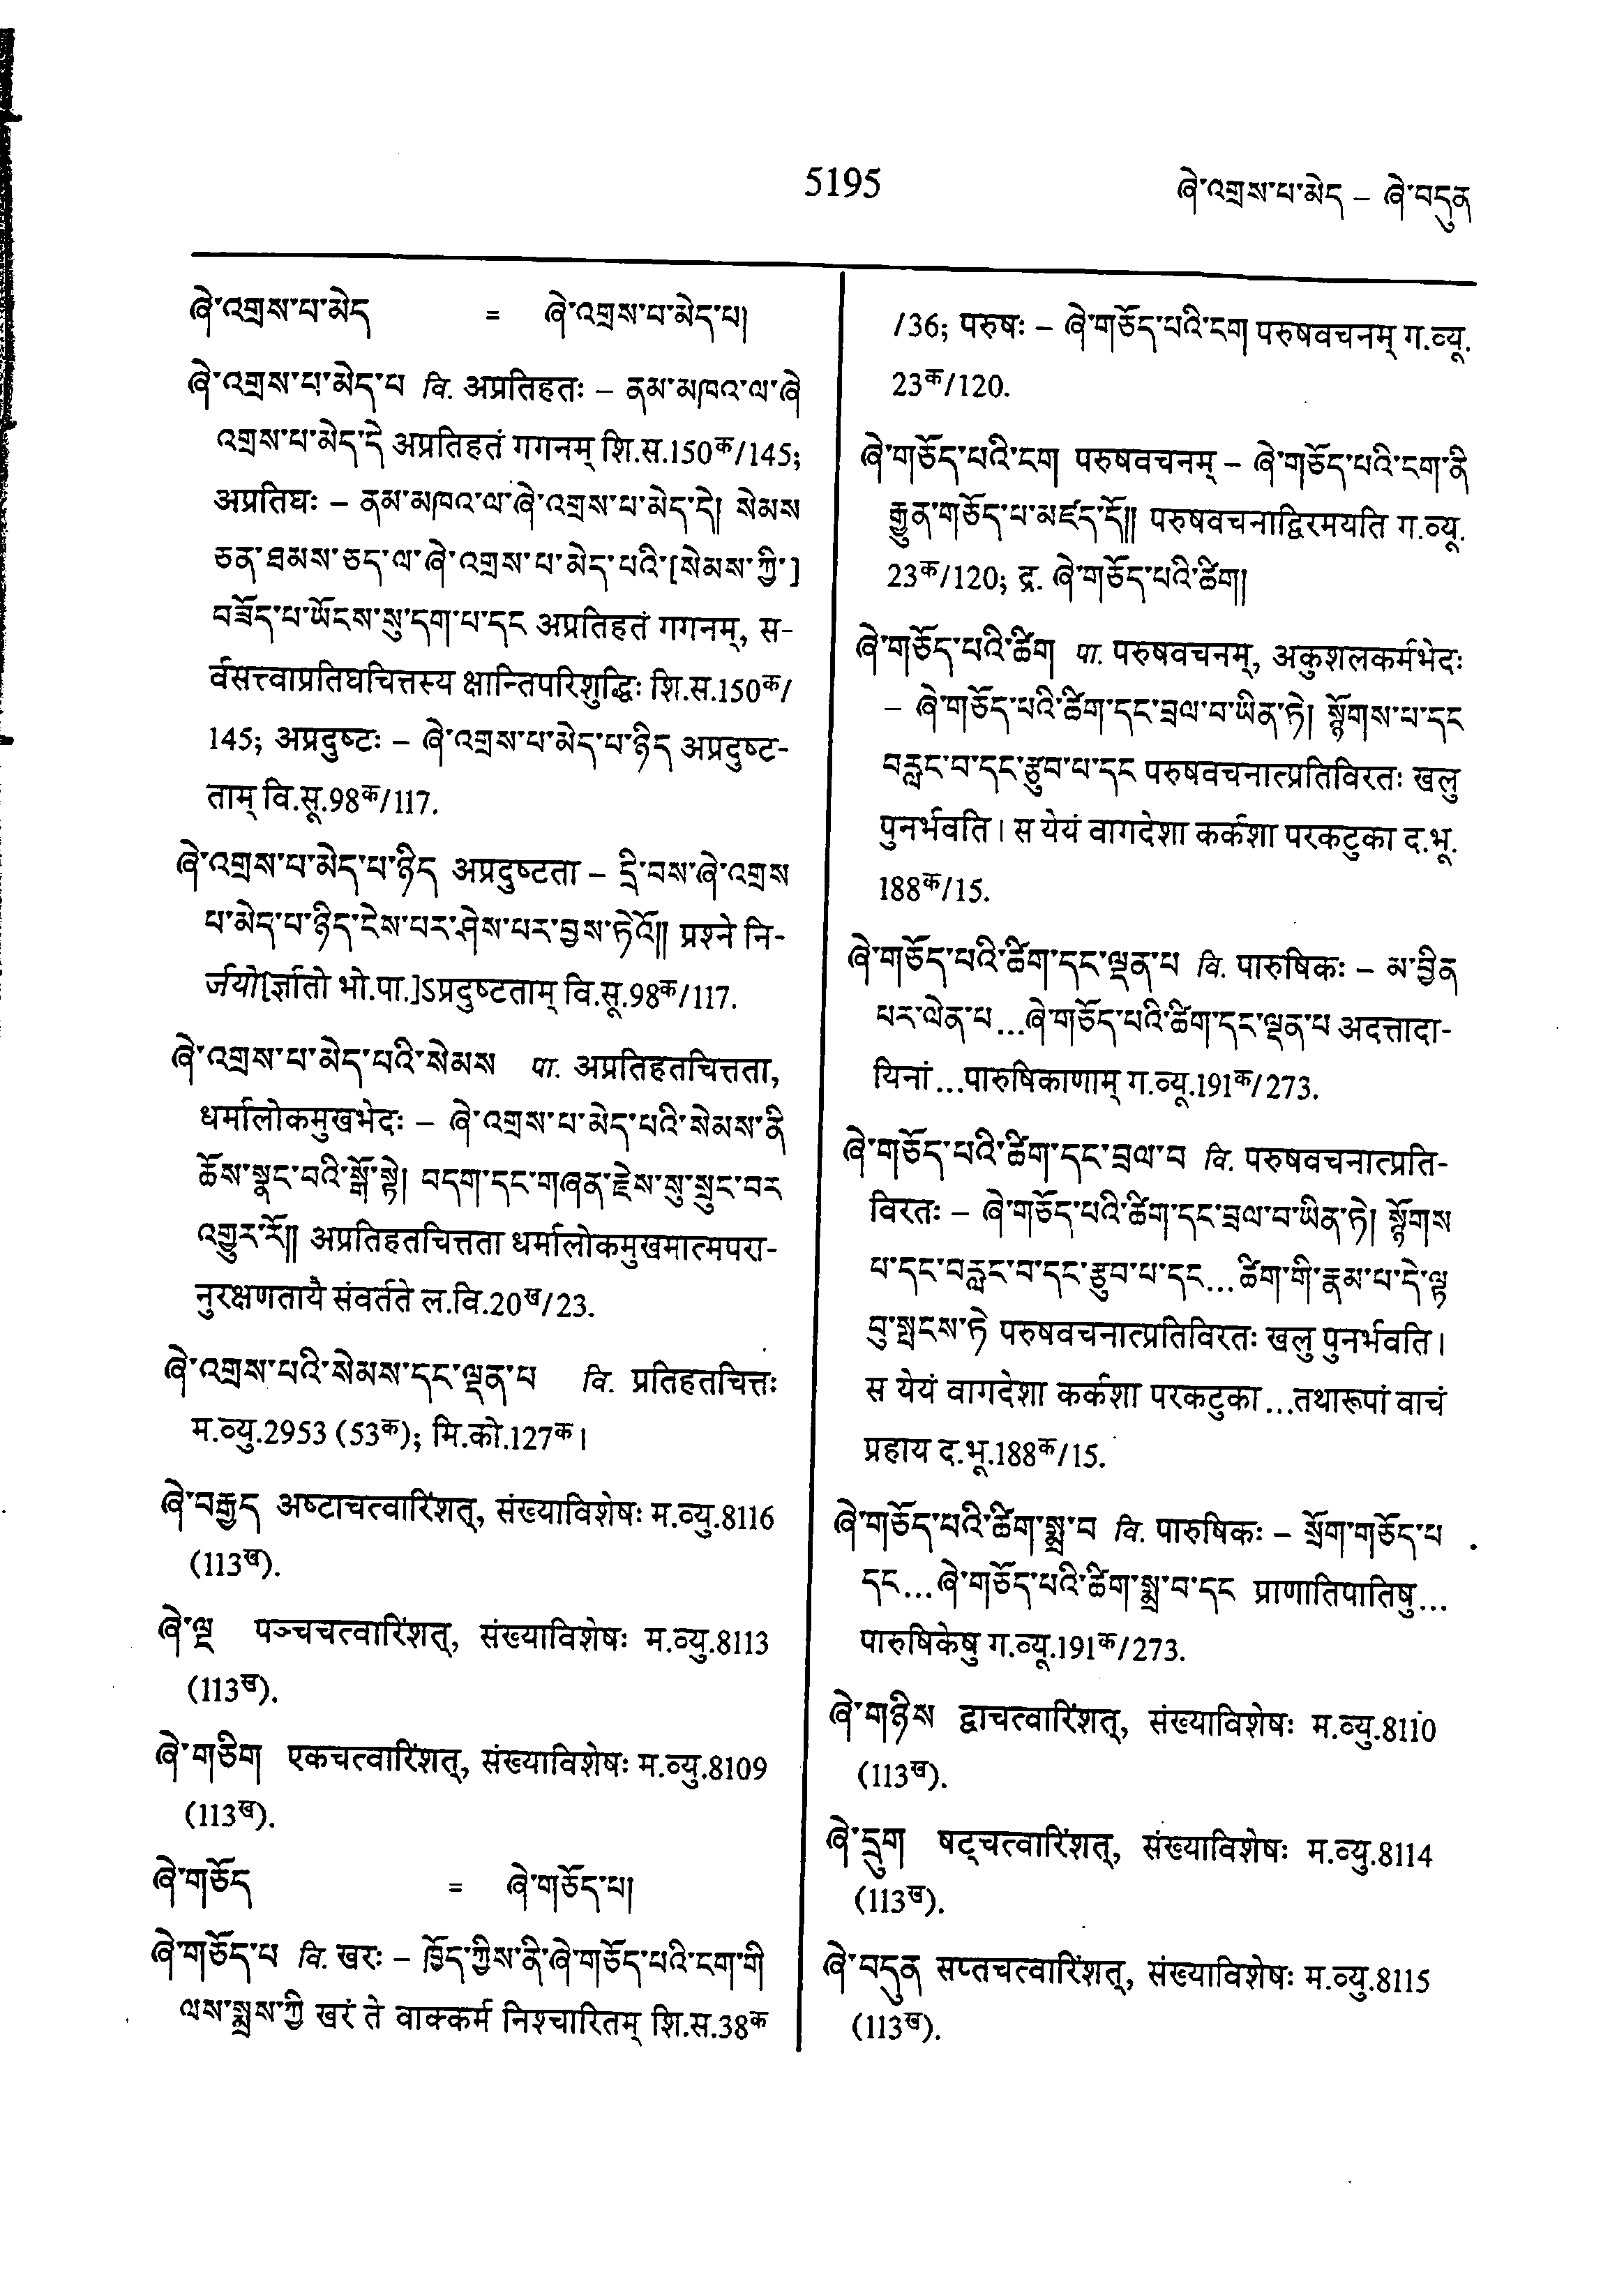 5195
ཞེ་འགྲས་པ་མེད – ཞེ་བདུན
ཞེ་འགྲས་པ་མེད = ཞེ་འགྲས་པ་མེད་པ།
ཞེ་འགྲས་པ་མེད་པ वि. अप्रतिहतः – ནམ་མཁའ་ལ་ཞེ
འགྲས་པ་མེད་དེ अप्रतिहतं गगनम् शि.स.150क/145;
अप्रतिघः – ནམ་མཁའ་ལ་ཞེ་འགྲས་པ་མེད་དེ། སེམས
ཅན་ཐམས་ཅད་ལ་ཞེ་འགྲས་པ་མེད་པའི་[སེམས་ཀྱི་]
བཟོད་པ་ཡོངས་སུ་དག་པ་དང अप्रतिहतं गगनम्, स-
र्वसत्त्वाप्रतिघचित्तस्य क्षान्तिपरिशुद्धिः शि.स.150क/
145; अप्रदुष्टः – ཞེ་འགྲས་པ་མེད་པ་ཉིད अप्रदुष्ट-
ताम् वि.सू.98क/117.
ཞེ་འགྲས་པ་མེད་པ་ཉིད अप्रदुष्टता – དྲི་བས་ཞེ་འགྲས
པ་མེད་པ་ཉིད་ངེས་པར་ཤེས་པར་བྱས་ཏེའོ།། प्रश्ने नि-
र्जयो[र्ज्ञातो भो.पा.]ऽप्रदुष्टताम् वि.सू.98क/117.
ཞེ་འགྲས་པ་མེད་པའི་སེམས पा. अप्रतिहतचित्तता,
धर्मालोकमुखभेदः – ཞེ་འགྲས་པ་མེད་པའི་སེམས་ནི
ཆོས་སྣང་བའི་སྒོ་སྟེ། བདག་དང་གཞན་རྗེས་སུ་སྲུང་བར
འགྱུར་རོ།། अप्रतिहतचित्तता धर्मालोकमुखमात्मपरा-
नुरक्षणतायै संवर्तते ल.वि.20ख/23.
ཞེ་འགྲས་པའི་སེམས་དང་ལྡན་པ वि. प्रतिहतचित्तः
म.व्यु.2953 (53क); मि.को.127क।
ཞེ་བརྒྱད अष्टाचत्वारिंशत्, संख्याविशेषः म.व्यु.8116
(113ख).
ཞེ་ལྔ पञ्चचत्वारिंशत्, संख्याविशेषः म.व्यु.8113
(113ख).
ཞེ་གཅིག एकचत्वारिंशत्, संख्याविशेषः म.व्यु.8109
(113ख).
ཞེ་གཅོད = ཞེ་གཅོད་པ།
ཞེ་གཅོད་པ वि. खरः – ཁྱོད་ཀྱིས་ནི་ཞེ་གཅོད་པའི་ངག་གི
ལས་སྨྲས་ཀྱི खरं ते वाक्कर्म निश्चारितम् शि.स.38क
/36; परुषः – ཞེ་གཅོད་པའི་ངག परुषवचनम् ग.व्यू.
23क/120.
ཞེ་གཅོད་པའི་ངག परुषवचनम् – ཞེ་གཅོད་པའི་ངག་ནི
རྒྱུན་གཅོད་པ་མཛད་དོ།། परुषवचनाद्विरमयति ग.व्यू.
23क/120; द्र. ཞེ་གཅོད་པའི་ཚིག།
ཞེ་གཅོད་པའི་ཚིག पा. परुषवचनम्, अकुशलकर्मभेदः
– ཞེ་གཅོད་པའི་ཚིག་དང་བྲལ་བ་ཡིན་ཏེ། སྙོགས་པ་དང
བརླང་བ་དང་རྩུབ་པ་དང परुषवचनात्प्रतिविरतः खलु
पुनर्भवति। स येयं वागदेशा कर्कशा परकटुका द.भू.
188क/15.
ཞེ་གཅོད་པའི་ཚིག་དང་ལྡན་པ वि. पारुषिकः – མ་བྱིན
པར་ལེན་པ...ཞེ་གཅོད་པའི་ཚིག་དང་ལྡན་པ अदत्तादा-
यिनां...पारुषिकाणाम् ग.व्यू.191क/273.
ཞེ་གཅོད་པའི་ཚིག་དང་བྲལ་བ वि. परुषवचनात्प्रति-
विरतः – ཞེ་གཅོད་པའི་ཚིག་དང་བྲལ་བ་ཡིན་ཏེ། སྙོགས
པ་དང་བརླང་བ་དང་རྩུབ་པ་དང...ཚིག་གི་རྣམ་པ་དེ་ལྟ
བུ་སྤངས་ཏེ परुषवचनात्प्रतिविरतः खलु पुनर्भवति।
स येयं वागदेशा कर्कशा परकटुका...तथारूपां वाचं
प्रहाय द.भू.188क/15.
ཞེ་གཅོད་པའི་ཚིག་སྨྲ་བ वि. पारुषिकः – སྲོག་གཅོད་པ
དང...ཞེ་གཅོད་པའི་ཚིག་སྨྲ་བ་དང प्राणातिपातिषु...
पारुषिकेषु ग.व्यू.191क/273.
ཞེ་གཉིས द्वाचत्वारिंशत्, संख्याविशेषः म.व्यु.8110
(113ख).
ཞེ་དྲུག षट्चत्वारिंशत्, संख्याविशेषः म.व्यु.8114
(113ख).
ཞེ་བདུན सप्तचत्वारिंशत्, संख्याविशेषः म.व्यु.8115
(113ख).